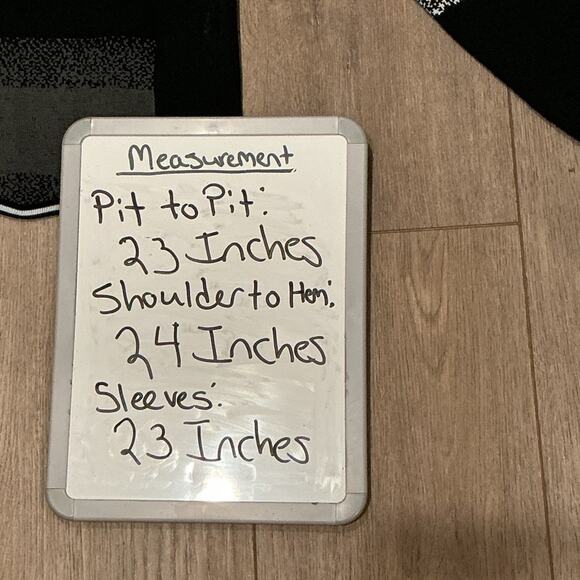 Measurement
Pit to Pit:
23 Inches
Shoulder to Hem:
24 Inches
Sleeves:
23 Inches